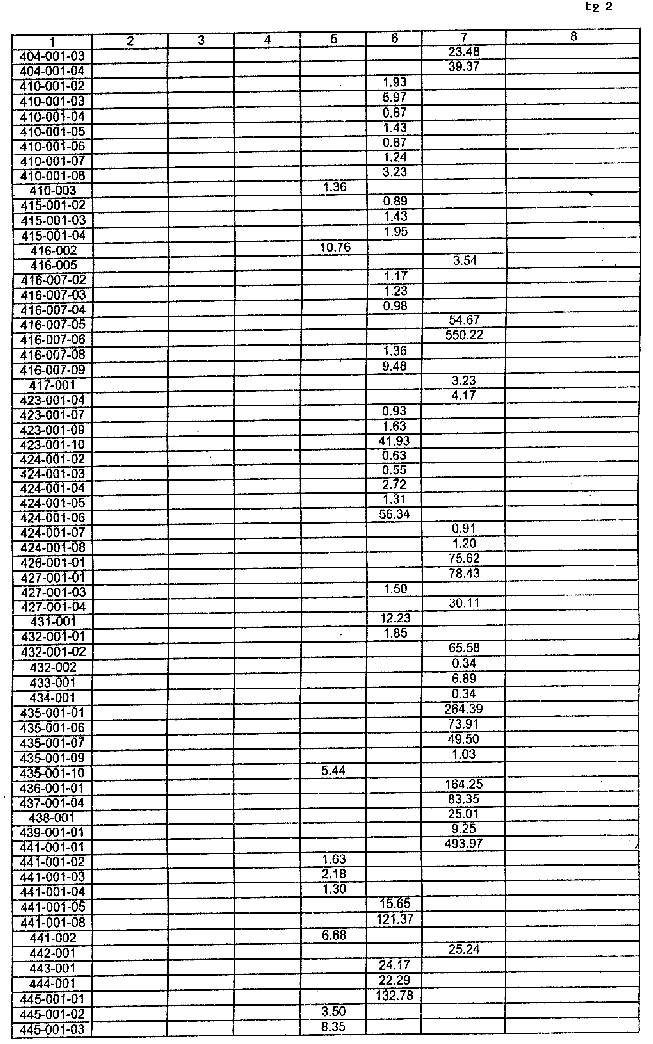 Էջ 2
1 2 3 4 5 6 7 8
404-001-03 23.48
404-001-04 39.37
410-001-02 1.93
410-001-03 5.97
410-001-04 0.67
410-001-05 1.43
410-001-06 0.87
410-001-07 1.24
410-001-08 3.23
410-003 1.36
415-001-02 0.89
415-001-03 1.43
415-001-04 1.95
416-002 10.76
416-005 3.54
416-007-02 1.17
416-007-03 1.23
416-007-04 0.98
416-007-05 54.67
416-007-06 550.22
416-007-08 1.36
416-007-09 9.48
417-001 3.23
423-001-04 4.17
423-001-07 0.93
423-001-09 1.63
423-001-10 41.93
424-001-02 0.63
424-001-03 0.55
424-001-04 2.72
424-001-05 1.31
424-001-06 56.34
424-001-07 0.91
424-001-08 1.20
426-001-01 75.62
427-001-01 78.43
427-001-03 1.50
427-001-04 30.11
431-001 12.23
432-001-01 1.85
432-001-02 65.58
432-002 0.34
433-001 6.89
434-001 0.34
435-001-01 264.39
435-001-06 73.91
435-001-07 49.50
435-001-09 1.03
435-001-10 5.44
436-001-01 164.25
437-001-04 83.35
438-001 25.01
439-001-01 9.25
441-001-01 493.97
441-001-02 1.63
441-001-03 2.18
441-001-04 1.30
441-001-05 15.65
441-001-08 121.37
441-002 6.68
442-001 25.24
443-001 24.17
444-001 22.29
445-001-01 132.78
445-001-02 3.50
445-001-03 8.35